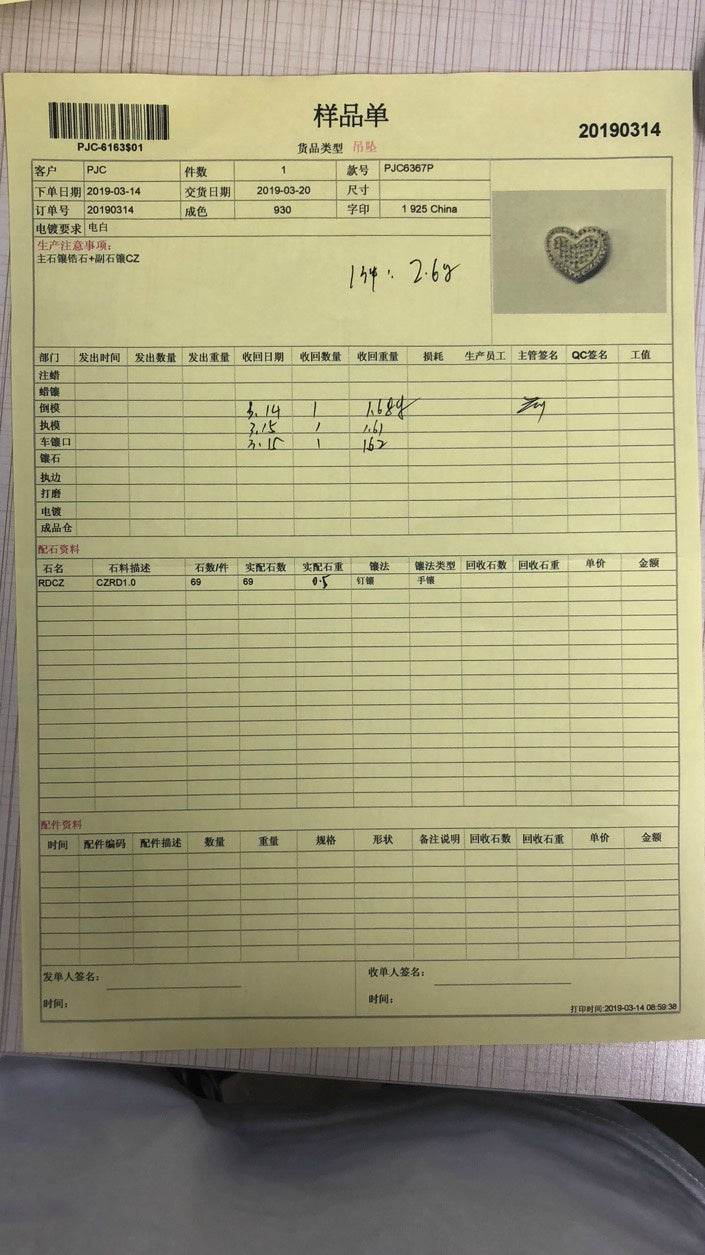 样品单
20190314
PJC-6163$01
货品类型 吊坠
客户 PJC 件数 1 款号 PJC6367P
下单日期 2019-03-14 交货日期 2019-03-20 尺寸
订单号 20190314 成色 930 字印 1 925 China
电镀要求 电白
生产注意事项:
主石镶锆石+副石镶CZ
2.6g
部门 发出时间 发出数量 发出重量 收回日期 收回数量 收回重量 损耗 生产员工 主管签名 QC签名 工值
注蜡
蜡镶
倒模 3.14 1 1.68g
执模 3.15 1 1.61
车镶口 3.15 1 162
镶石
执边
打磨
电镀
成品仓
配石资料
石名 石料描述 石数/件 实配石数 实配石重 镶法 镶法类型 回收石数 回收石重 单价 金额
RDCZ CZRD1.0 69 69 0.5 钉镶 手镶
配件资料
时间 配件编码 配件描述 数量 重量 规格 形状 备注说明 回收石数 回收石重 单价 金额
发单人签名: 收单人签名:
时间: 时间:
打印时间:2019-03-14 08:59:38